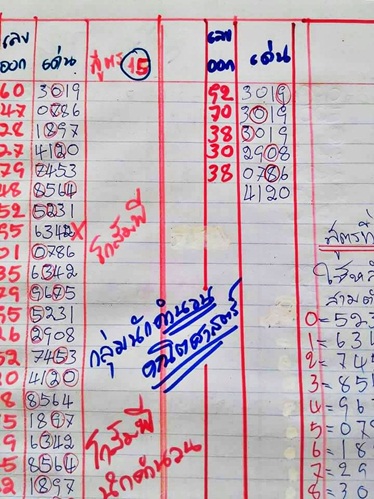 เลข
ออก เด่น สูตร 15
60 3019
47 0786
28 1897
27 4120
79 7453
48 8564
52 5231
95 6342x
01 0786
35 6342
79 9675
95 5231
26 2908
52 7453
20 4120
8 8564
5 1897
9 6342
5 8564
2 1897
โกสัมพี
กลุ่มนักคำนวน
คณิตศาสตร์
โกสัมพี
นักคำนวน
เลข
ออก เด่น
92 3019
70 3019
38 3019
30 2908
38 0786
4120
สูตรที่
0=523
1=634
2=745
3=85
4=96
5=07
6=18
7=29
8=30